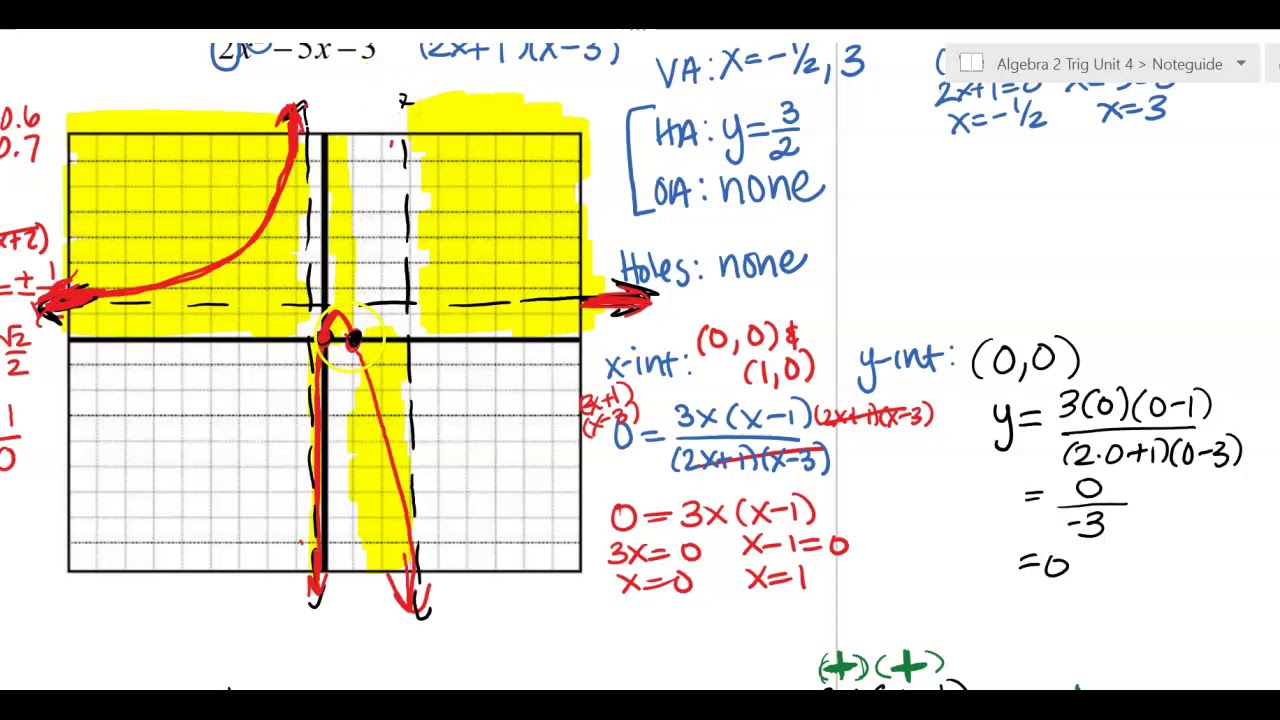 2x² - 5x - 3 (2x+1)(x-3)
VA: x = -½, 3
Algebra 2 Trig Unit 4 > Noteguide
2x+1=0
x=-½ x=3
HA: y = 3/2
OA: none
Holes: none
0.6
0.7
x+2)
= ± 1
√2/2
1/0
x-int: (0,0) &
(1,0)
y-int: (0,0)
(x-3)
0 = 3x(x-1) (2x+1)(x-3)
(2x+1)(x-3)
y = 3(0)(0-1)
(2·0+1)(0-3)
= 0
-3
= 0
0 = 3x(x-1)
3x=0 x-1=0
x=0 x=1
(+)(+)